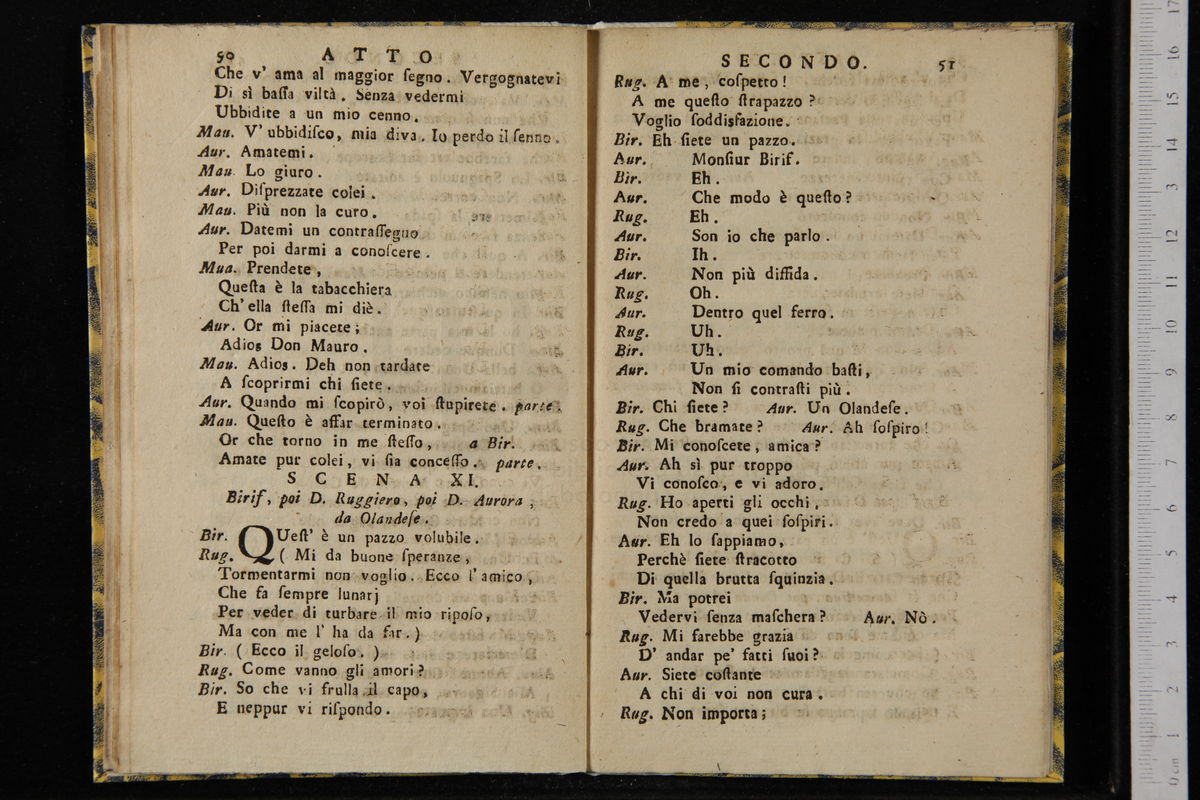 50 ATTO
Che v' ama al maggior ſegno. Vergognatevi
Di sì baſſa viltà. Senza vedermi
Ubbidite a un mio cenno.
Mau. V' ubbidiſco, mia diva. Io perdo il ſenno.
Aur. Amatemi.
Mau. Lo giuro.
Aur. Diſprezzate colei.
Mau. Più non la curo.
Aur. Datemi un contraſſegno
Per poi darmi a conoſcere.
Mua. Prendete,
Queſta è la tabacchiera
Ch' ella ſteſſa mi diè.
Aur. Or mi piacete;
Adios Don Mauro.
Mau. Adios. Deh non tardate
A ſcoprirmi chi ſiete.
Aur. Quando mi ſcopirò, voi ſtupirete. parte.
Mau. Queſto è affar terminato.
Or che torno in me ſteſſo, a Bir.
Amate pur colei, vi ſia conceſſo. parte.
SCENA XI.
Birif, poi D. Ruggiero, poi D. Aurora,
da Olandeſe.
Bir. QUeſt' è un pazzo volubile.
Rug. ( Mi da buone ſperanze,
Tormentarmi non voglio. Ecco l' amico,
Che fa ſempre lunarj
Per veder di turbare il mio ripoſo,
Ma con me l' ha da far. )
Bir. ( Ecco il geloſo. )
Rug. Come vanno gli amori?
Bir. So che vi frulla il capo,
E neppur vi riſpondo.
SECONDO. 51
Rug. A me, coſpetto!
A me queſto ſtrapazzo?
Voglio ſoddisfazione.
Bir. Eh ſiete un pazzo.
Aur. Monſiur Birif.
Bir. Eh.
Aur. Che modo è queſto?
Rug. Eh.
Aur. Son io che parlo.
Bir. Ih.
Aur. Non più diffida.
Rug. Oh.
Aur. Dentro quel ferro.
Rug. Uh.
Bir. Uh.
Aur. Un mio comando baſti,
Non ſi contraſti più.
Bir. Chi ſiete? Aur. Un Olandeſe.
Rug. Che bramate? Aur. Ah ſoſpiro!
Bir. Mi conoſcete, amica?
Aur. Ah sì pur troppo
Vi conoſco, e vi adoro.
Rug. Ho aperti gli occhi,
Non credo a quei ſoſpiri.
Aur. Eh lo ſappiamo,
Perchè ſiete ſtracotto
Di quella brutta ſquinzia.
Bir. Ma potrei
Vedervi ſenza maſchera? Aur. Nò.
Rug. Mi farebbe grazia
D' andar pe' fatti ſuoi?
Aur. Siete coſtante
A chi di voi non cura.
Rug. Non importa;
0 cm 1 2 3 4 5 6 7 8 9 10 11 12 13 14 15 16 17